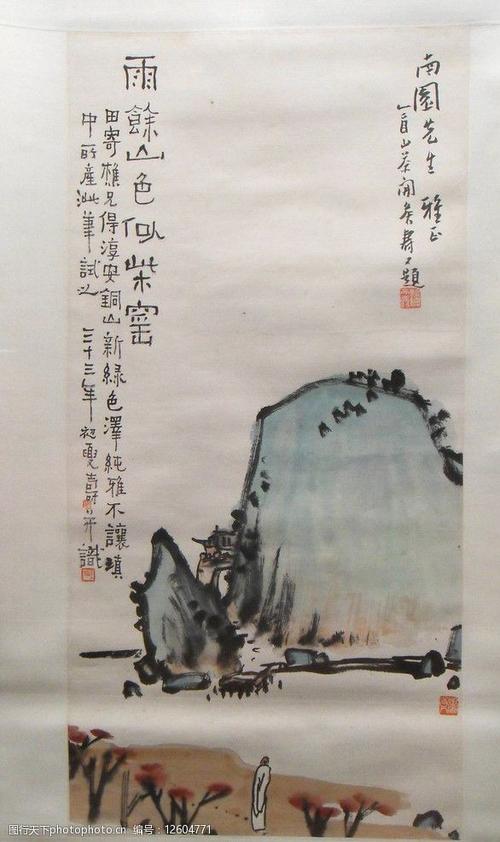 南園先生 雅正
山茶開矣 壽題
雨餘山色似柴窰
田寄樵兄得淳安銅山新綠色澤純雅不讓滇
中所產沘筆試之 三十三年初夏壽并識
行行天下photophoto.cn 编号：12604771